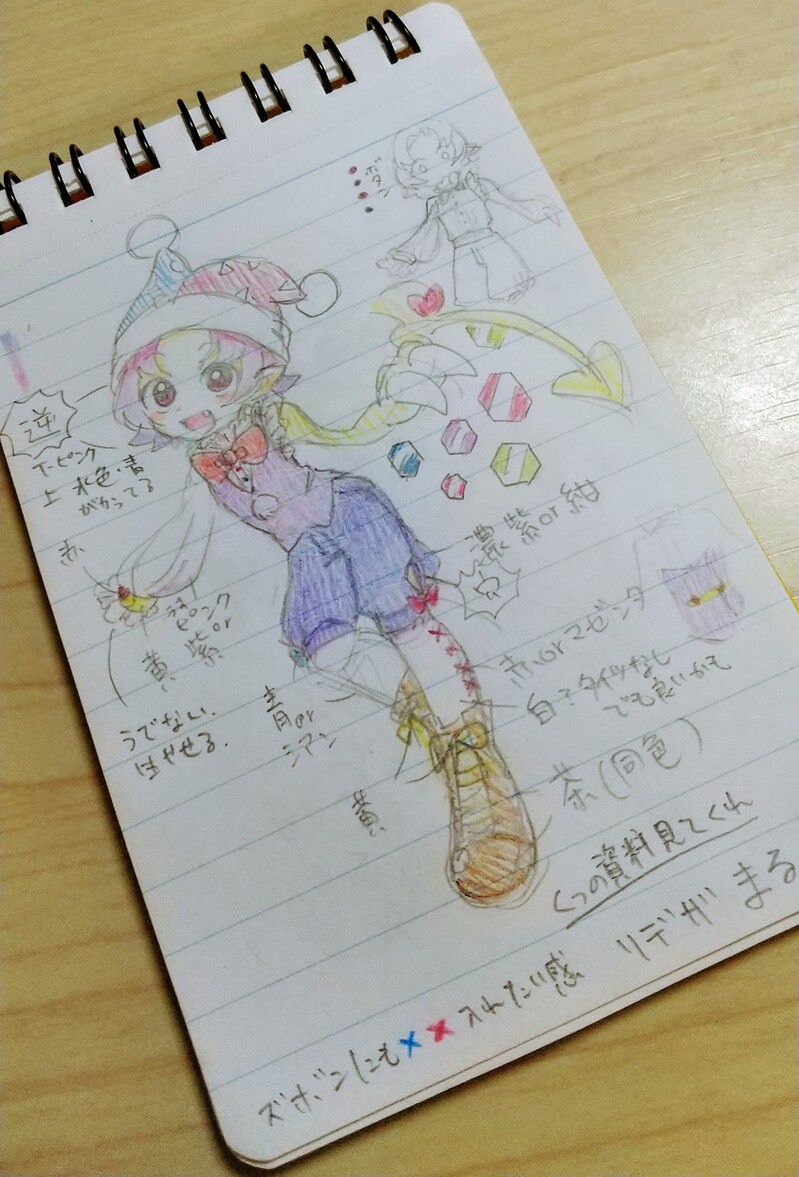 ボタン
逆
下ピンク
上 水色・青
がかってる
赤
濃紫or紺
黄
青or
シアン
うでない、
はやせる。
赤orマゼンタ
白?タイツなし
でも良いかも
黄
茶(同色)
くつの資料見てくれ
リデザ まる
ズボンにも××入れたい感